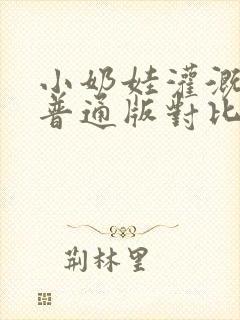 小奶娃灌溉
普通版對比
荆林里